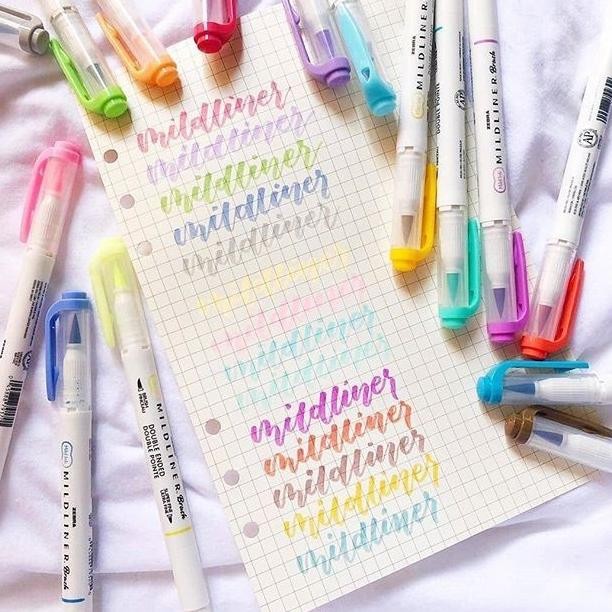 mildliner
mildliner
mildliner
mildliner
mildliner
mildliner
mildliner
mildliner
mildliner
mildliner
mildliner
mildliner
mildliner
mildliner
ZEBRA
MILDLINER Brush
DOUBLE ENDED
DOUBLE POINTE
MILDLINER Brush
ZEBRA
MILDLINER
DOUBLE POINTE
ZEBRA
MILDLINER Brush
AP